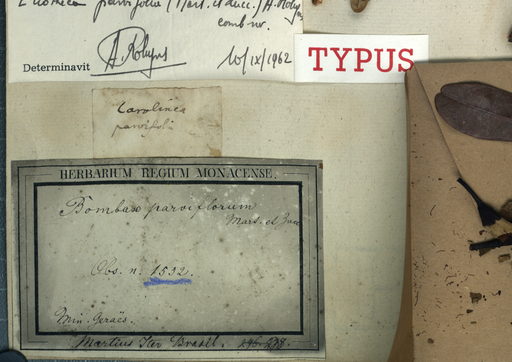 parvifolia (Mart. et Zucc.) A. Robyns
comb nov.
Determinavit A. Robyns 10/IX/1962
TYPUS
Carolinea
parvifolia
HERBARIUM REGIUM MONACENSE.
Bombax parviflorum
Mart. et Zucc
Obs. n. 1532.
Min. Geraës.
Martius Iter Brasil.